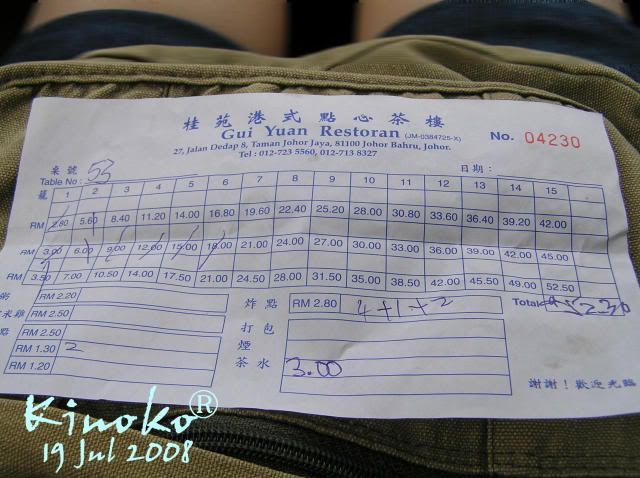 桂苑港式點心茶樓
Gui Yuan Restoran (JM-0384725-X)
No. 04230
27, Jalan Dedap 8, Taman Johor Jaya, 81100 Johor Bahru, Johor.
Tel : 012-723 5560, 012-713 8327
枱號
Table No : 53
日期 :
籠 1 2 3 4 5 6 7 8 9 10 11 12 13 14 15
RM 2.80 5.60 8.40 11.20 14.00 16.80 19.60 22.40 25.20 28.00 30.80 33.60 36.40 39.20 42.00
RM 3.00 6.00 9.00 12.00 15.00 18.00 21.00 24.00 27.00 30.00 33.00 36.00 39.00 42.00 45.00
RM 3.50 7.00 10.50 14.00 17.50 21.00 24.50 28.00 31.50 35.00 38.50 42.00 45.50 49.00 52.50
粥 RM 2.20
米雞 RM 2.50
點 RM 2.50
RM 1.30 2
RM 1.20
炸點 RM 2.80 4+1+2
打包
煙
茶水 3.00
Total
謝謝！歡迎光臨
Kinoko®
19 Jul 2008